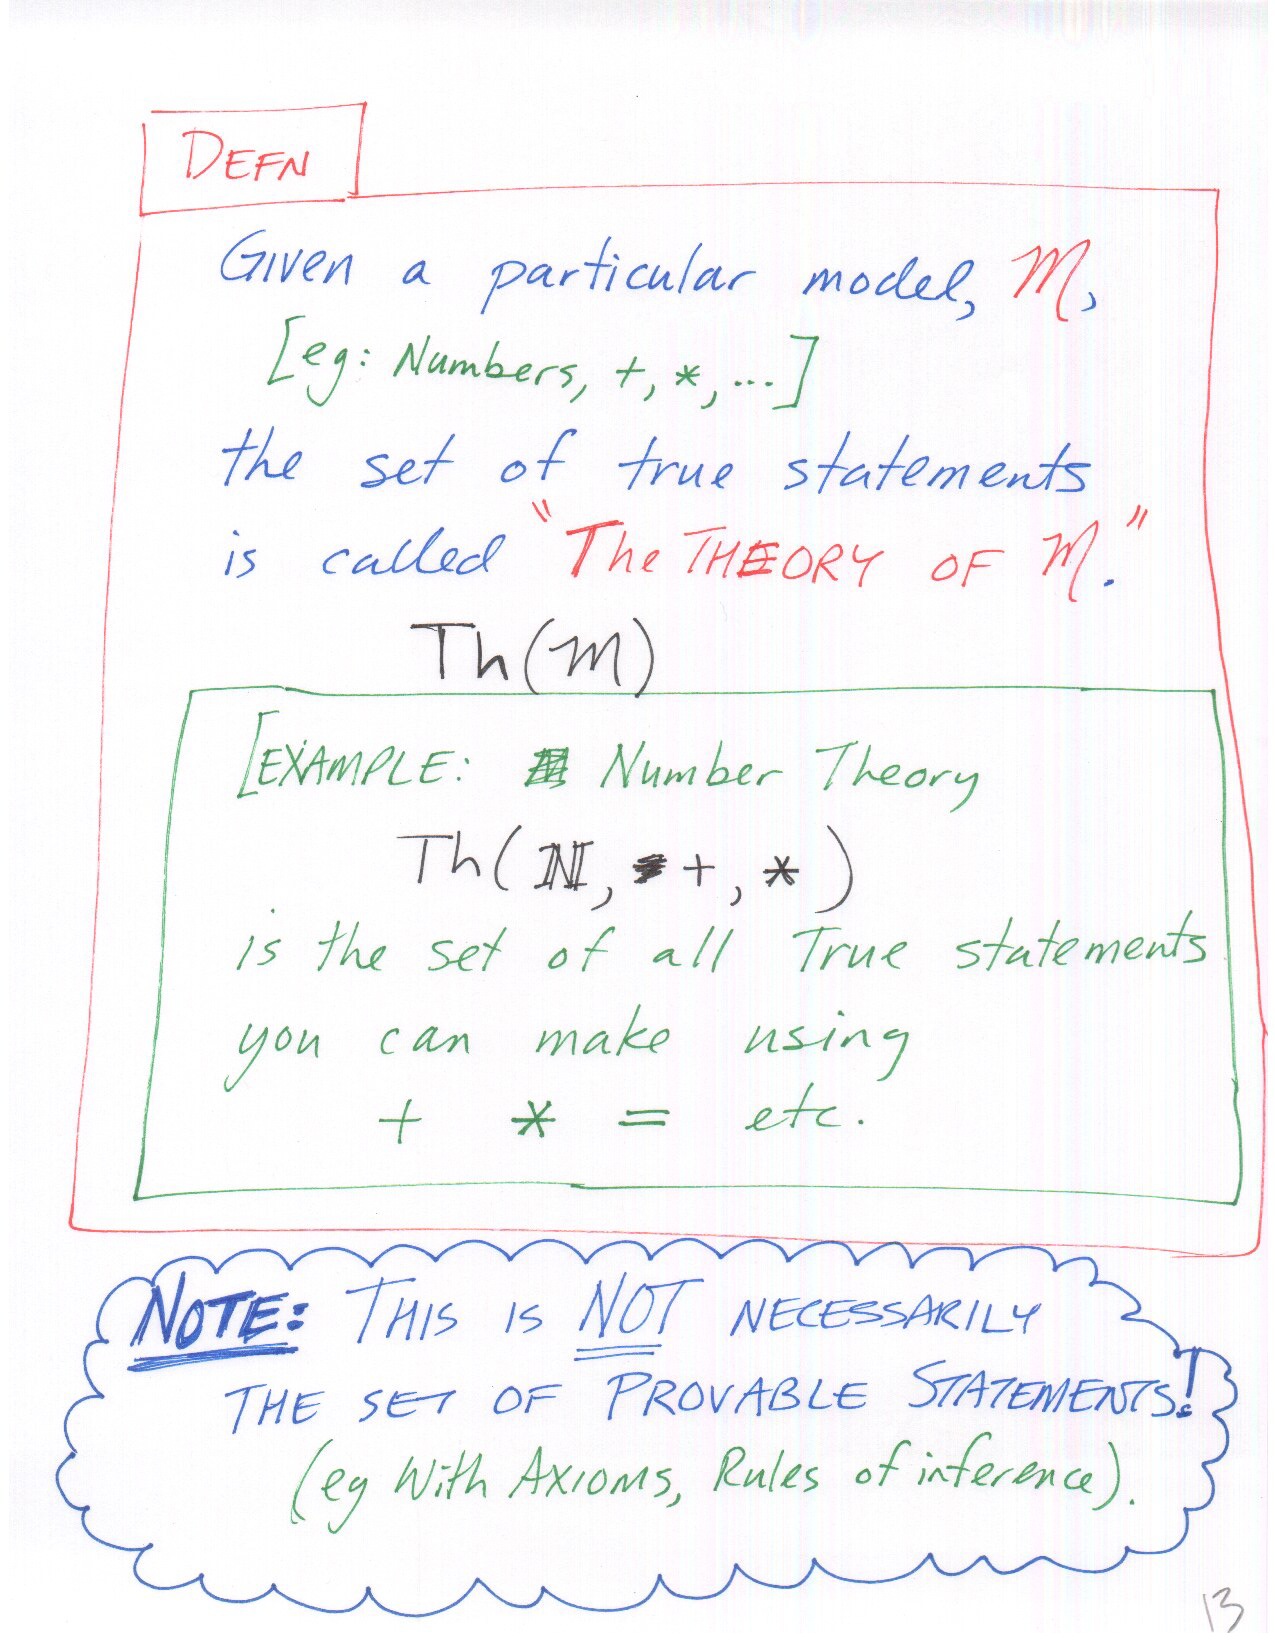 DEFN
Given a particular model, M,
[eg: Numbers, +, *, ...]
the set of true statements
is called "The THEORY OF M."
Th(M)
[EXAMPLE: Number Theory
Th(ℕ, +, *)
is the set of all True statements
you can make using
+ * = etc.
NOTE: THIS IS NOT NECESSARILY
THE SET OF PROVABLE STATEMENTS!
(eg With AXIOMS, Rules of inference).
13